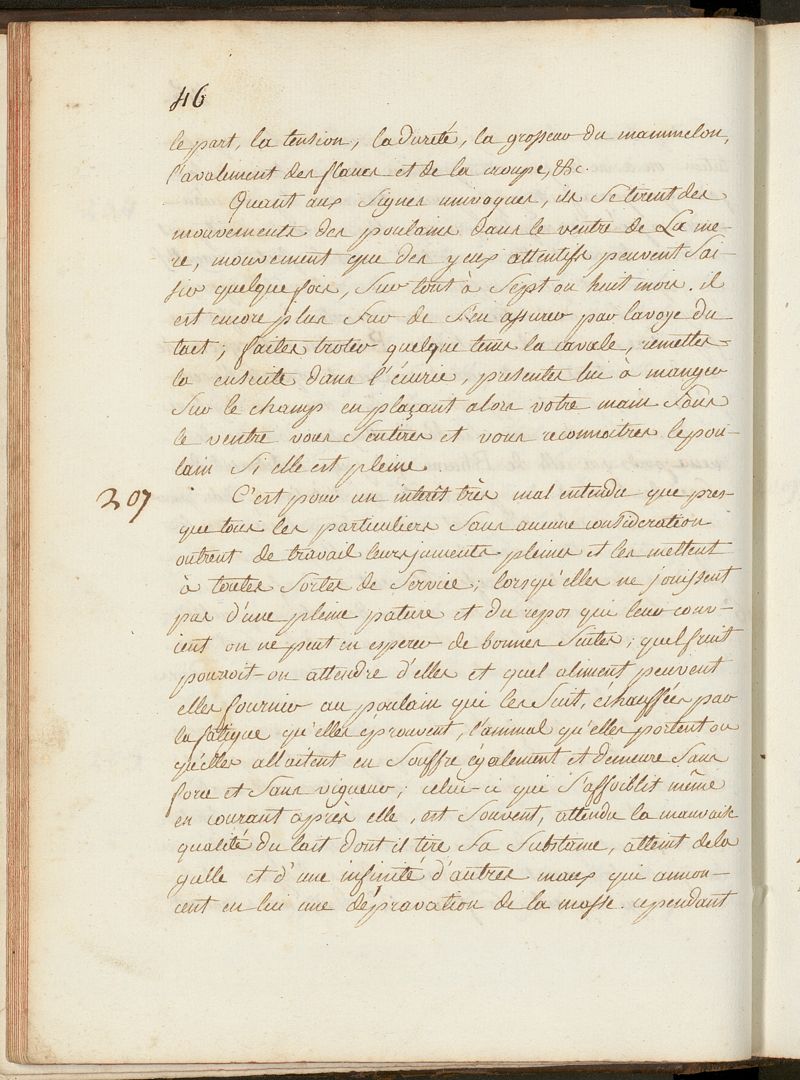 46
le part, la tension, la dureté, la grosseur du mammelon,
l'avalement des flancs et de la croupe, &c.
Quant aux signes univoques, ils se tirent des
mouvements des poulains dans le ventre de La me-
re, mouvement que des yeux attentifs peuvent Sai-
sir quelque fois, Sur tout à Sept ou huit mois. il
est encore plus Sur de S'en assurer par la voye du
tact; faites troter quelque tems la cavale, remettes-
la ensuite dans l'écurie, presentes lui à manger
Sur le champ en plaçant alors votre main Sous
le ventre vous Sentires et vous reconnoitres le pou-
lain Si elle est pleine.
207
C'est pour un interêt très mal entendu que pres-
que tous les particuliers Sans aucune consideration
outrent de travail leurs juments pleines et les mettent
à toutes Sortes de Service; lorsqu'elles ne jouissent
pas d'une pleine pature et du repos qui leur conv-
ient on ne peut en esperer de bonnes Suites; quel fruit
pouroit-on attendre d'elles et quel aliment peuvent
elles fournir au poulain qui les Suit, échauffées par
la fatigue qu'elles éprouvent, l'animal qu'elles portent ou
qu'elles allaitent en Souffre également et demeure Sans
force et Sans vigueur; celui-ci qui S'affoiblit même
en courant après elle, est Souvent, attendu la mauvaise
qualité du lait dont il tire Sa Substance, atteint de la
galle et d'une infinité d'autres maux qui annon-
cent en lui une dépravation de la masse. cependant